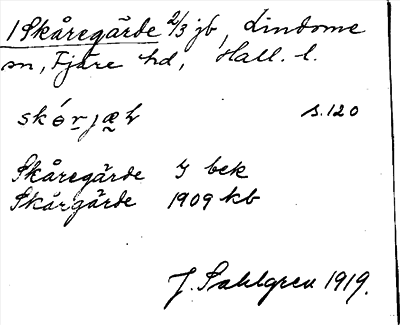 1 Skåregärde 2/3 jb, Lindome
sn, Fjäre hd, Hall. l.
s.120
Skåregärde J bek
Skårgärde 1909 kb
J. Sahlgren 1919.